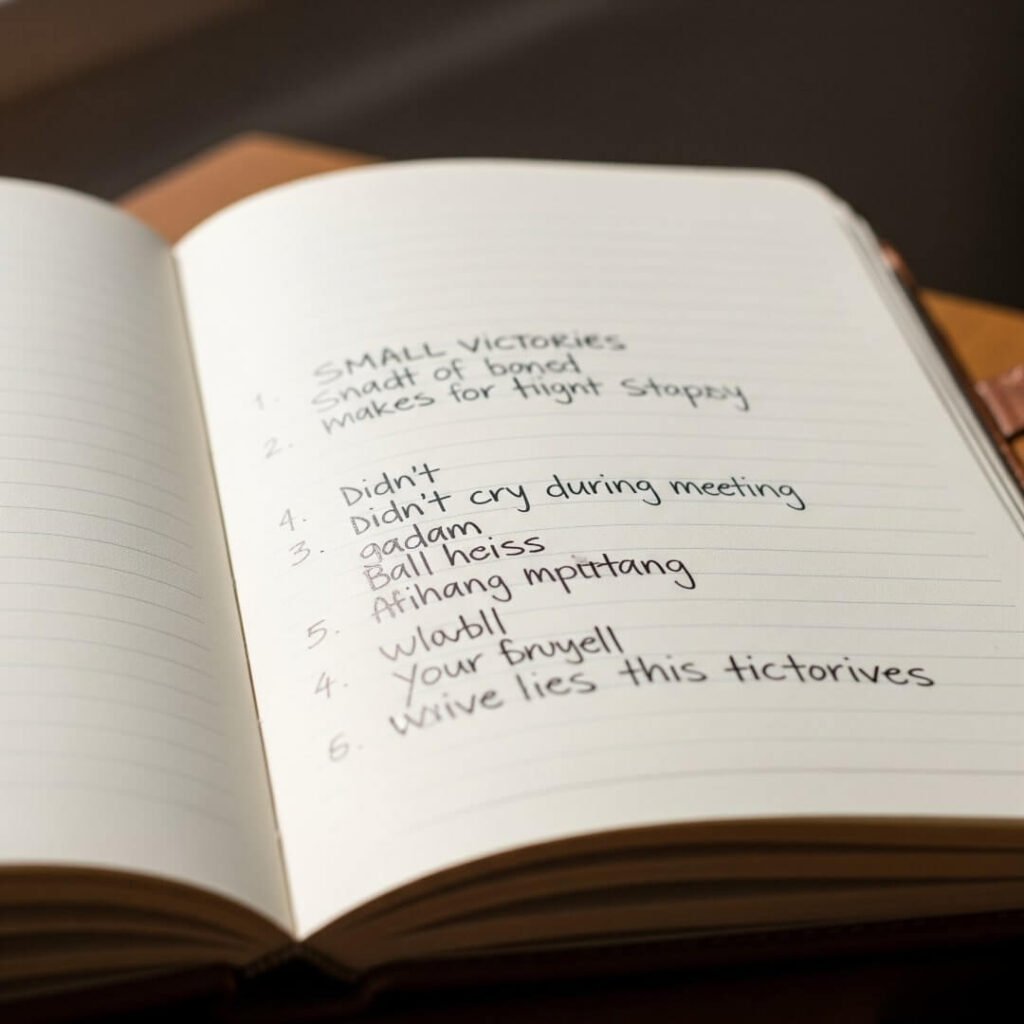 SMALL VICTORIES
1. Snadt of boned
makes for tiignt Stapsy
2.
Didn't
4. Didn't cry during meeting
3. gadam
Ball heiss
Afihang mpirtang
5. wlabll
4. Your Bruyell
wrive lies this tictorives
6.